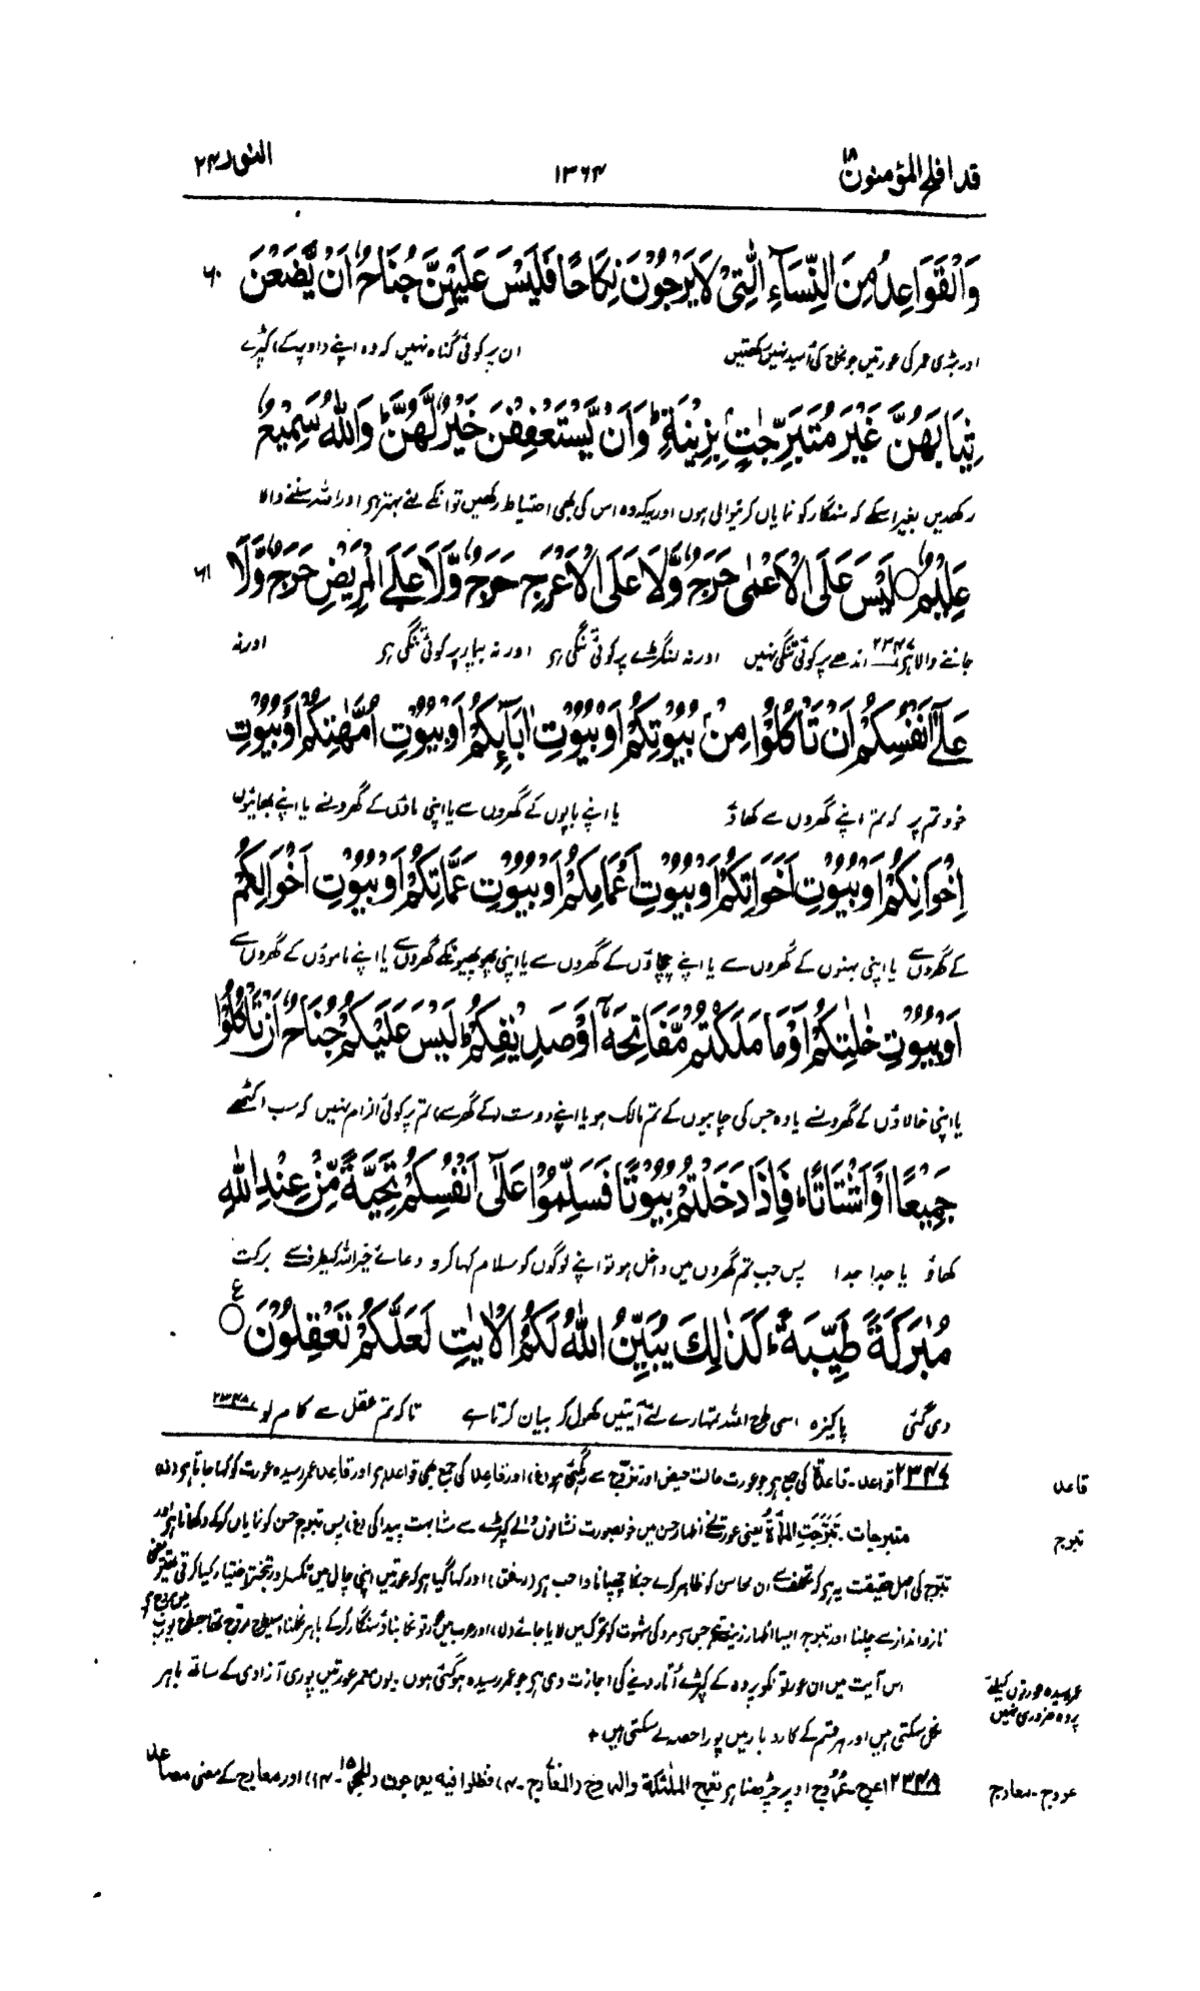 قد افلح المؤمنون ۱۸
۱۳۶۴
النور ۲۴
وَالْقَوَاعِدُ مِنَ النِّسَآءِ الّٰتِیْ لَا یَرْجُوْنَ نِكَاحًا فَلَیْسَ عَلَیْهِنَّ جُنَاحٌ اَنْ یَّضَعْنَ ۶۰
اور بڑی عمر کی عورتیں جو نکاح کی اُمید نہیں رکھتیں ان پر کوئی گناہ نہیں کہ وہ اپنے (اوپر کے) کپڑے
ثِیَابَهُنَّ غَیْرَ مُتَبَرِّجٰتٍۭ بِزِیْنَةٍ ؕ وَاَنْ یَّسْتَعْفِفْنَ خَیْرٌ لَّهُنَّ ؕ وَاللّٰهُ سَمِیْعٌ
رکھدیں بغیر اسکے کہ سنگار کو نمایاں کرنیوالی ہوں اور یہ کہ وہ اس کی بھی احتیاط رکھیں تو انکے لئے بہتر ہو اور اللہ سننے والا
عَلِیْمٌ ○ لَیْسَ عَلَی الْاَعْمٰی حَرَجٌ وَّلَا عَلَی الْاَعْرَجِ حَرَجٌ وَّلَا عَلَی الْمَرِیْضِ حَرَجٌ وَّلَا ۶۱
جاننے والا ہو ۲۳۴۷ اندھے پر کوئی تنگی نہیں اور نہ لنگڑے پر کوئی تنگی ہو اور نہ بیمار پر کوئی تنگی ہو اور نہ
عَلٰۤی اَنْفُسِكُمْ اَنْ تَاْكُلُوْا مِنْۢ بُیُوْتِكُمْ اَوْ بُیُوْتِ اٰبَآئِكُمْ اَوْ بُیُوْتِ اُمَّهٰتِكُمْ اَوْ بُیُوْتِ
خود تم پر کہ تم اپنے گھروں سے کھاؤ یا اپنے باپوں کے گھروں سے یا اپنی ماؤں کے گھرونسے یا اپنے بھائیوں
اِخْوَانِكُمْ اَوْ بُیُوْتِ اَخَوٰتِكُمْ اَوْ بُیُوْتِ اَعْمَامِكُمْ اَوْ بُیُوْتِ عَمّٰتِكُمْ اَوْ بُیُوْتِ اَخْوَالِكُمْ
کے گھروں سے یا اپنی بہنوں کے گھروں سے یا اپنے چچاؤں کے گھروں سے یا اپنی پھوپھیونکے گھروں سے یا اپنے ماموؤں کے گھروں سے
اَوْ بُیُوْتِ خٰلٰتِكُمْ اَوْ مَا مَلَكْتُمْ مَّفَاتِحَهٗۤ اَوْ صَدِیْقِكُمْ ؕ لَیْسَ عَلَیْكُمْ جُنَاحٌ اَنْ تَاْكُلُوْا
یا اپنی خالاؤں کے گھرونسے یا وہ جس کی چابیوں کے تم مالک ہو یا اپنے دوست (کے گھر سے) تم پر کوئی الزام نہیں کہ سب اکٹھے
جَمِیْعًا اَوْ اَشْتَاتًا ؕ فَاِذَا دَخَلْتُمْ بُیُوْتًا فَسَلِّمُوْا عَلٰۤی اَنْفُسِكُمْ تَحِیَّةً مِّنْ عِنْدِ اللّٰهِ
کھاؤ یا جدا جدا پس جب تم گھروں میں داخل ہو تو اپنے لوگوں کو سلام کہا کرو دعائے خیر اللہ کیطرف سے برکت
مُبٰرَكَةً طَیِّبَةً ؕ كَذٰلِكَ یُبَیِّنُ اللّٰهُ لَكُمُ الْاٰیٰتِ لَعَلَّكُمْ تَعْقِلُوْنَ ○ ع
دی گئی پاکیزہ اسی طرح اللہ تمہارے لئے آیتیں کھول کر بیان کرتا ہے تاکہ تم عقل سے کام لو ۲۳۴۸
۲۳۴۷ قواعد۔ قاعدۃ کی جمع ہو جو عورت حالت حیض اور تزوّج سے رہ گئی ہو (غ) اور قاعد کی جمع بھی قواعد ہو اور قاعد عمر رسیدہ عورت کو کہا جاتا ہو
قاعد
متبرجات۔ تَبَرَّجَتِ المرأۃُ یعنی عورت نے اظہار حسن میں خوبصورت نشانوں والے کپڑے سے مشابہت پیدا کی (غ) پس تبرج حسن کو نمایاں کرکے دکھانا ہو اور
تبرج
تبرّج کی اصل حقیقت یہ ہو کہ تکلف سے ان محاسن کو ظاہر کرے جنکا چھپانا واجب ہو اور کہا گیا ہو کہ عورتیں اپنی چال میں تکسر اور تبختر اختیار کیا کرتی تھیں یعنی
ناز و انداز سے چلنا اور تبرج ایسا اظہار زینت ہے جس سے مرد کی شہوت کو تحرک میں لایا جائے (ل) اور عرب میں عورتوں کا بناؤ سنگار کرکے باہر نکلنا اسیطرح مروج تھا جسطرح یورپ میں مروج ہو
اس آیت میں ان عورتونکو پردہ کے کپڑے اُتار دینے کی اجازت دی ہو جو عمر رسیدہ ہو گئی ہوں۔ یوں معمر عورتیں پوری آزادی کے ساتھ باہر
عمر رسیدہ عورتوں کیلئے
پردہ ضروری نہیں
نکل سکتی ہیں اور ہر قسم کے کاروبار میں پورا حصہ لے سکتی ہیں +
۲۳۴۸ اعرج۔ عُرُوج اوپر چڑھنا ہو تعرج الملٰئکۃ والروح (المعارج۔۴) فظلوا فیہ یعرجون (الحجر ۱۵-۱۴) اور معارج کے معنی مصاعد
عروج۔ معارج